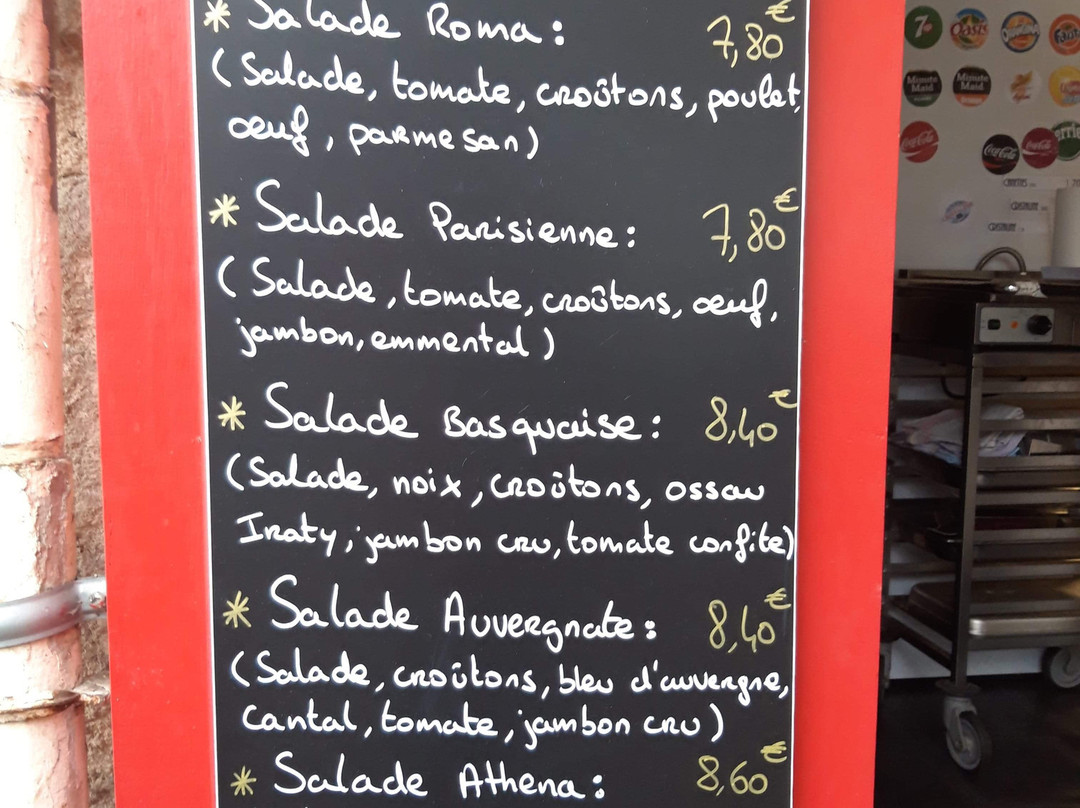 * Salade Roma : 7,80€
(Salade, tomate, croûtons, poulet,
œuf, parmesan)
* Salade Parisienne : 7,80€
(Salade, tomate, croûtons, œuf,
jambon, emmental)
* Salade Basquaise : 8,40€
(Salade, noix, croûtons, ossau
Iraty, jambon cru, tomate confite)
* Salade Auvergnate : 8,40€
(Salade, croûtons, bleu d'auvergne,
Cantal, tomate, jambon cru)
* Salade Athena : 8,60€
7
Oasis
Minute Maid
Minute Maid
Coca-Cola
Coca-Cola
Coca-Cola